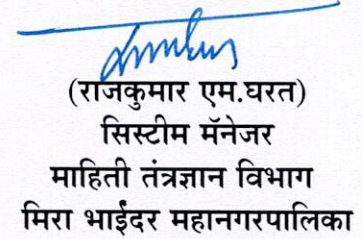 (राजकुमार एम.घरत)
सिस्टीम मॅनेजर
माहिती तंत्रज्ञान विभाग
मिरा भाईंदर महानगरपालिका